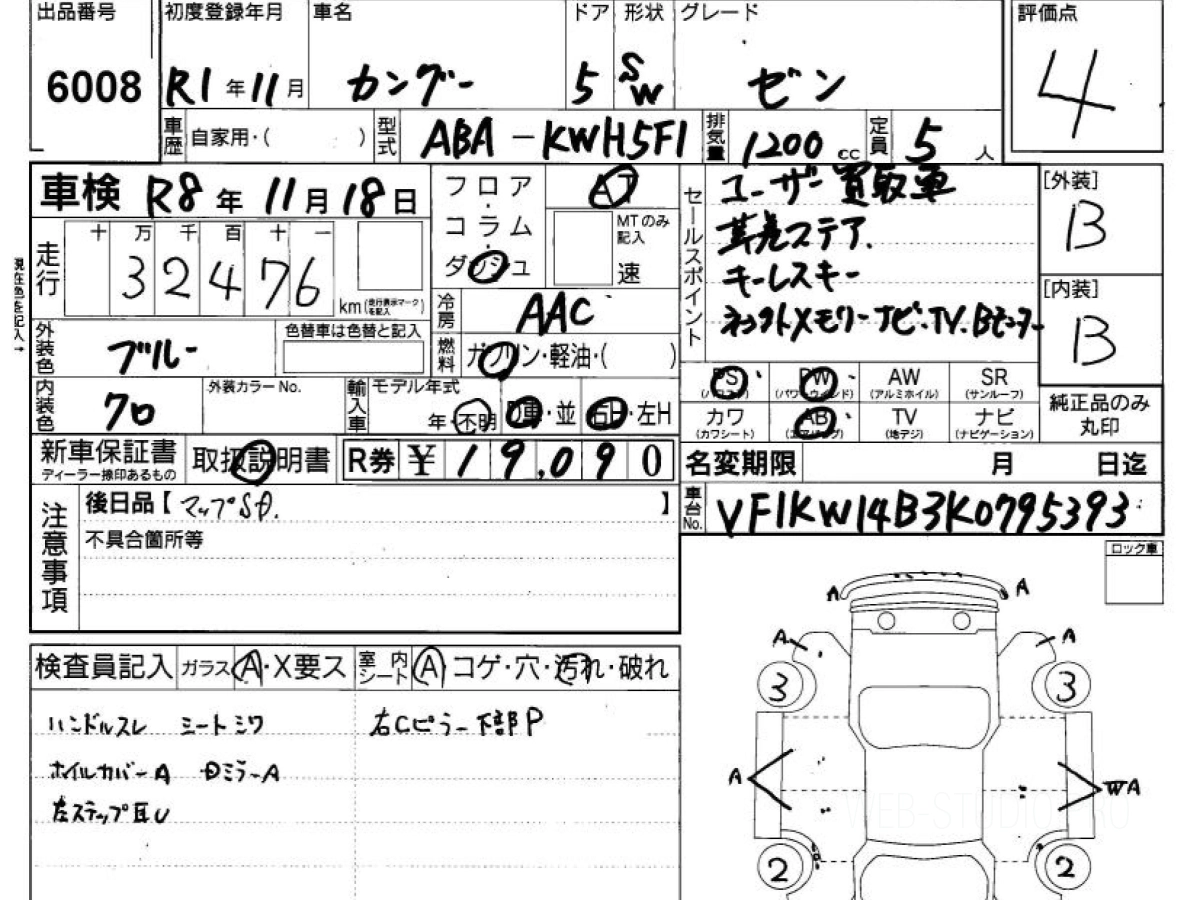 出品番号 初度登録年月 車名 ドア 形状 グレード 評価点
6008 R1年11月 カングー 5 SW ゼン 4
車歴 自家用・( ) 型式 ABA-KWH5F1 排気量 1200cc 定員 5人
車検 R8年11月18日
走行 十 万 千 百 十 一
32476 km (走行表示マークを記入)
現在色を記入→
フロア・コラム・ダッシュ AT
MTのみ記入 速
冷房 AAC
燃料 ガソリン・軽油・( )
セールスポイント
ユーザー買取車
革巻ステア.
キーレスキー
ネックストメモリーナビ・TV.Bモニター
[外装] B
[内装] B
外装色 ブルー 色替車は色替と記入
内装色 クロ 外装カラーNo. 輸入車 モデル年式 年・不明 D車・並 右H・左H
PS (パワステ) PW (パワーウィンド) AW (アルミホイル) SR (サンルーフ)
カワ (カワシート) AB (エアバッグ) TV (地デジ) ナビ (ナビゲーション)
純正品のみ丸印
新車保証書 ディーラー捺印あるもの 取扱説明書 R券 ¥19,090
名変期限 月 日迄
車台No. VF1KW14B3K0795393
注意事項
後日品【マップSD.】
不具合箇所等
ロック車
検査員記入 ガラス A・X要ス 室内シート A コゲ・穴・汚れ・破れ
ハンドルスレ シートシワ 右Cピラー下部P
ホイルカバーA DミラーA
左ステップ耳U
A A
A A
3 3
A WA
2 2
WEB-STUDIO.RU